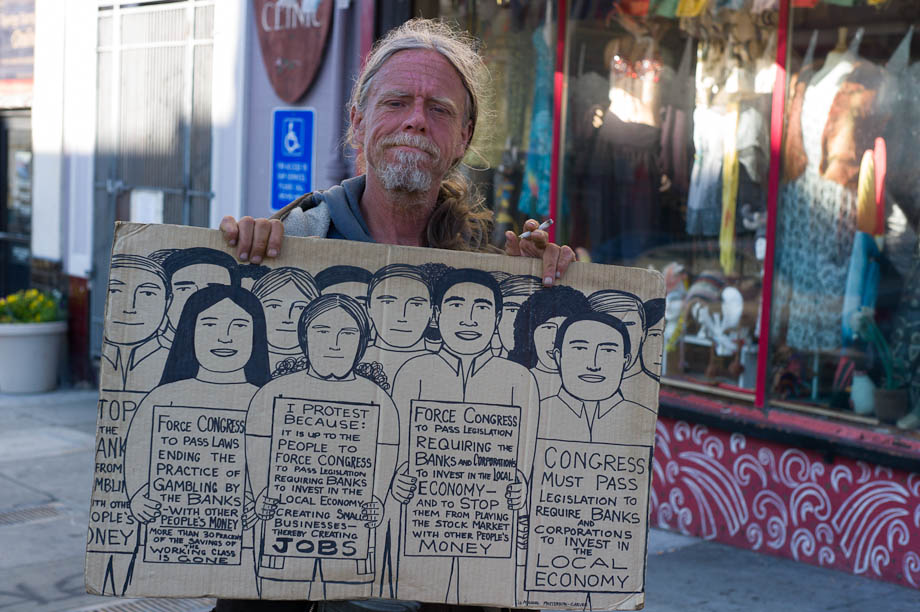 CLINIC
TOP
THE
ANK
FROM
MBLIN
WITH
OTHER
EOPLE'S
ONEY
FORCE CONGRESS
TO PASS LAWS
ENDING THE
PRACTICE OF
GAMBLING BY
THE BANKS
-WITH OTHER
PEOPLE'S MONEY
MORE THAN 30 PERCENT
OF THE SAVINGS OF
THE
WORKING CLASS
IS GONE
I PROTEST
BECAUSE:
IT IS UP TO THE
PEOPLE TO
FORCE CONGRESS
TO PASS LEGISLATION
REQUIRING BANKS
TO INVEST IN THE
LOCAL ECONOMY
CREATING SMALL
BUSINESSES-
THEREBY CREATING
JOBS
FORCE CONGRESS
TO PASS LEGISLATION
REQUIRING THE
BANKS AND CORPORATIONS
TO INVEST IN THE LOCAL
ECONOMY-
AND TO STOP
THEM FROM PLAYING
THE STOCK MARKET
WITH OTHER PEOPLE'S
MONEY
CONGRESS
MUST PASS
LEGISLATION TO
REQUIRE BANKS
AND
CORPORATIONS
TO INVEST IN
THE
LOCAL
ECONOMY